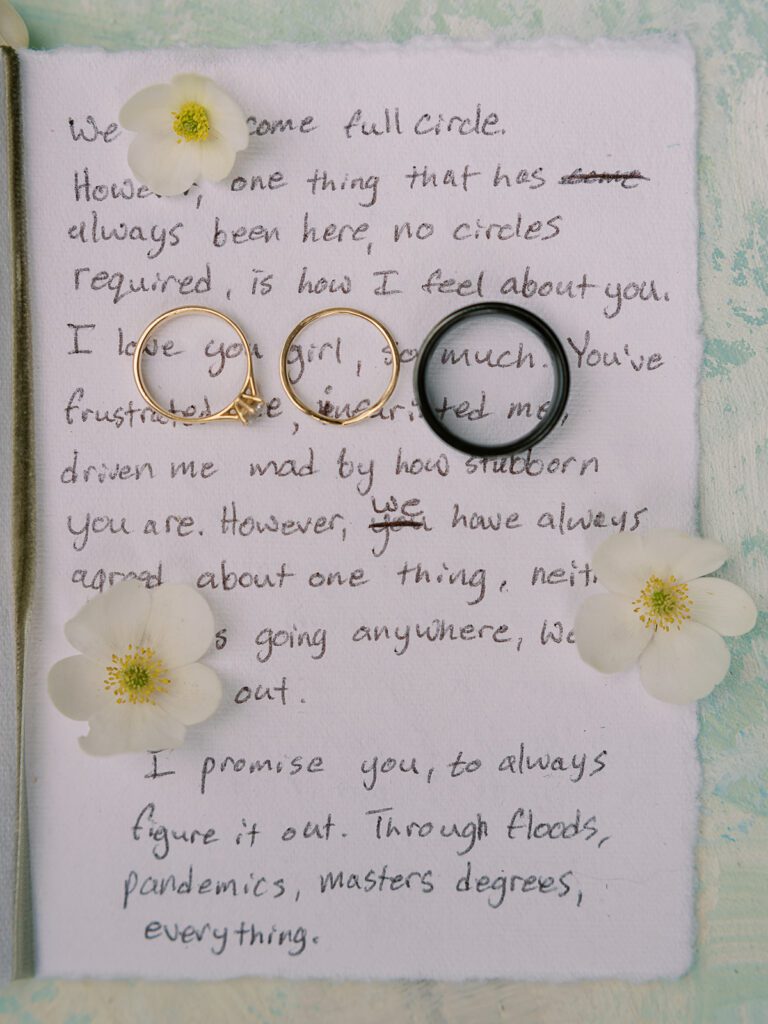 We come full circle.
However, one thing that has
always been here, no circles
required, is how I feel about you.
I love you girl, so much. You've
frustrated me, infuriated me,
driven me mad by how stubborn
you are. However, we have always
agreed about one thing,
going anywhere,
out.
I promise you, to always
figure it out. Through floods,
pandemics, masters degrees,
everything.